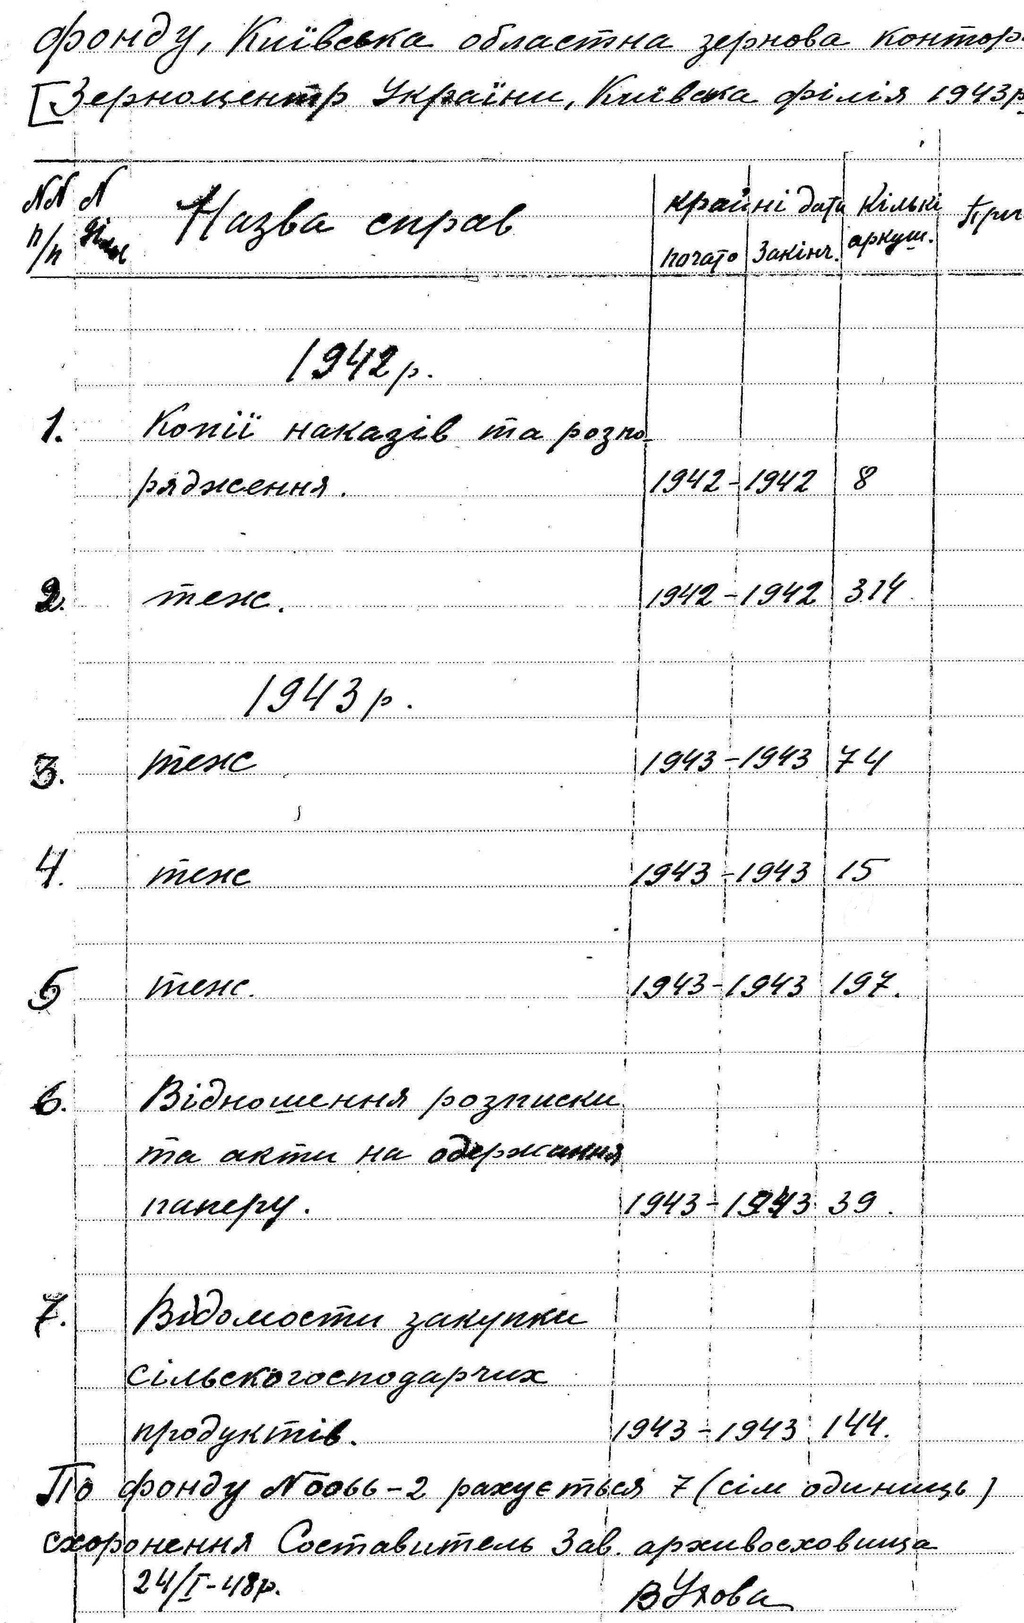 фонду, Київська обласна зернова контор
[Зерноцентр України, Київська філія 1943р
NN N Назва справ крайні дата Кількі Прим
п/п почато закінч. аркуш.
1942р.
1. Копії наказів та розпо-
рядження. 1942-1942 8
2. теж. 1942-1942 314
1943р.
3. теж 1943-1943 74
4. теж 1943-1943 15
5 теж. 1943-1943 197.
6. Відношення розписки
та акти на одержання
паперу. 1943-1943 39.
7. Відомости закупки
сільскогосподарчих
продуктів. 1943-1943 144.
По фонду N 0066-2 рахується 7 (сім одиниць)
схоронення Составитель Зав. архивосховища
24/I-48р.